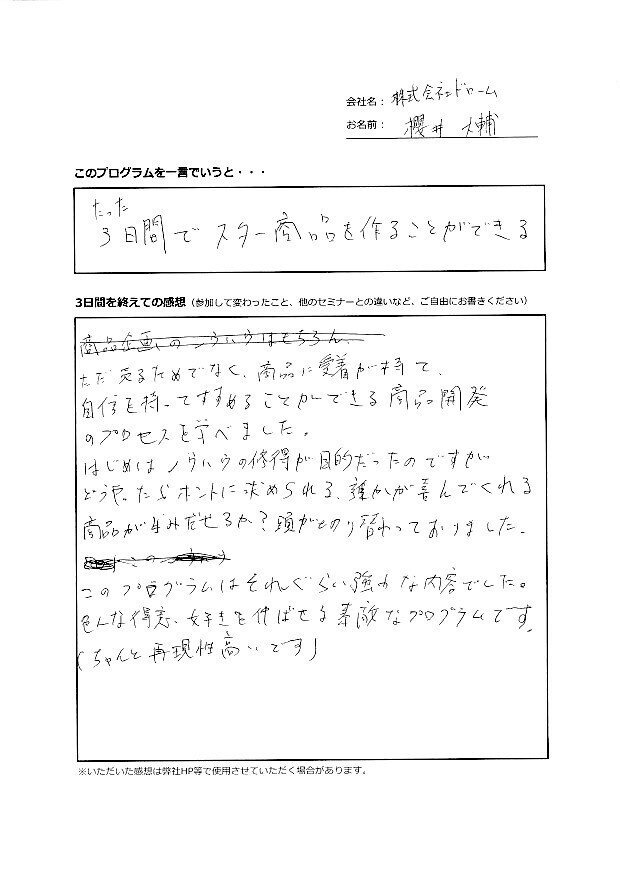 会社名： 株式会社ドゥーム
お名前： 櫻井 大輔
このプログラムを一言でいうと・・・
たった
3日間でスター商品を作ることができる
3日間を終えての感想（参加して変わったこと、他のセミナーとの違いなど、ご自由にお書きください）
商品企画のノウハウはもちろん、
ただ売るためでなく、商品に愛着が持て、
自信を持ってすすめることができる商品開発
のプロセスを学べました。
はじめはノウハウの修得が目的だったのですが
どうやったらホントに求められる、誰かが喜んでくれる
商品が生みだせるか？頭がきり替わっておりました。
このプログラムはそれぐらい強力な内容でした。
色んな得意、好きを伸ばせる素敵なプログラムです。
（ちゃんと再現性高いです）
※いただいた感想は弊社HP等で使用させていただく場合があります。